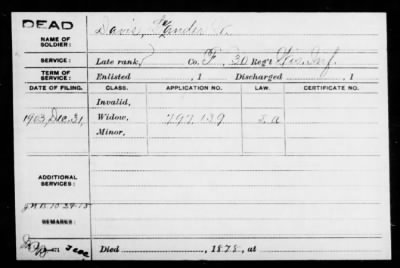 DEAD
NAME OF SOLDIER: Davis,
SERVICE: Late rank, Co. F, 30 Reg't Wis. Inf.
TERM OF SERVICE: Enlisted , 1 Discharged , 1
DATE OF FILING. CLASS. APPLICATION NO. LAW. CERTIFICATE NO.
Invalid,
1903, Dec. 31, Widow, 797,139
Minor,
ADDITIONAL SERVICES:
REMARKS:
Died , 1878, at